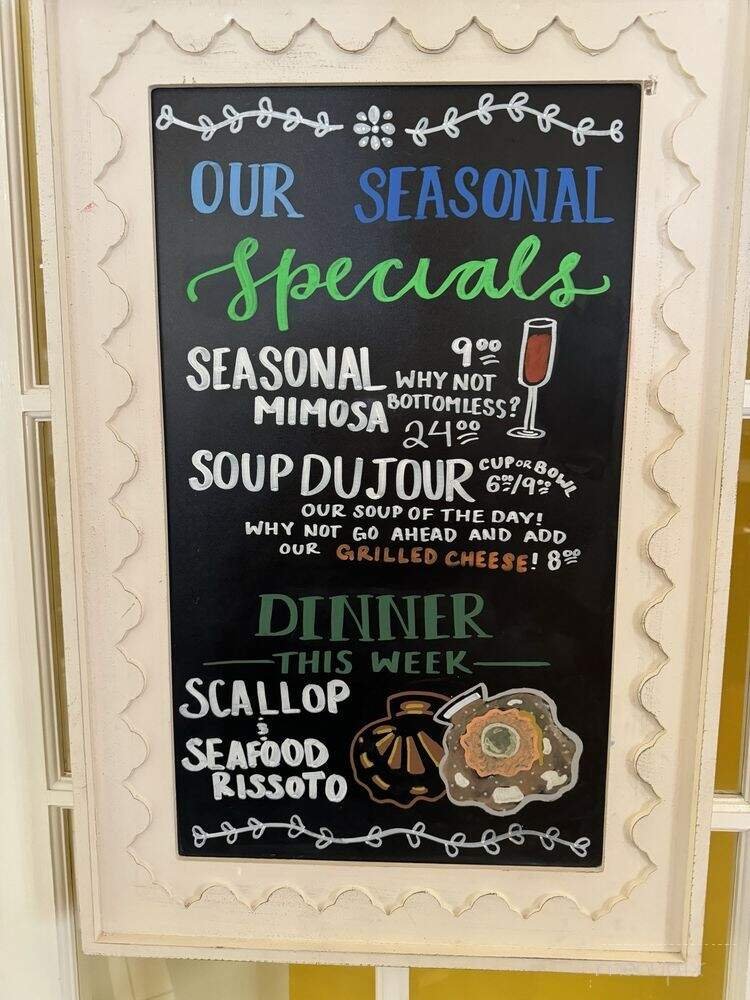 OUR SEASONAL
Specials
SEASONAL
MIMOSA
9.00
WHY NOT
BOTTOMLESS?
24.00
SOUP DU JOUR
CUP OR BOWL
6.00/9.00
OUR SOUP OF THE DAY!
WHY NOT GO AHEAD AND ADD
OUR GRILLED CHEESE! 8.00
DINNER
THIS WEEK
SCALLOP
&
SEAFOOD
RISSOTO